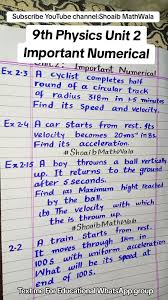 Subscribe YouTube channel:Shoaib MathWala
9th Physics Unit 2
Important Numerical
Unit 2: Important Numerical
Ex 2.3 A cyclist completes half
round of a circular track
of radius 318m in 1.5 minutes
Find its speed and velocity.
Ex 2.4 A car starts from rest. Its
velocity becomes 20ms⁻¹ in 8s
Find its acceleration.
#ShoaibMathWala
Ex 2.15 A boy throws a ball vertically
up. It returns to the ground
after 5 seconds.
Find (a) Maximum hight reached
by the ball.
(b) The velocity with which
the is thrown up.
#ShoaibMathWala
2.2 A train starts from rest.
It moves through 1km in
100s with uniform acceleration
What will be its speed at
end of 100s.
Text Me For Educational WhatsApp group